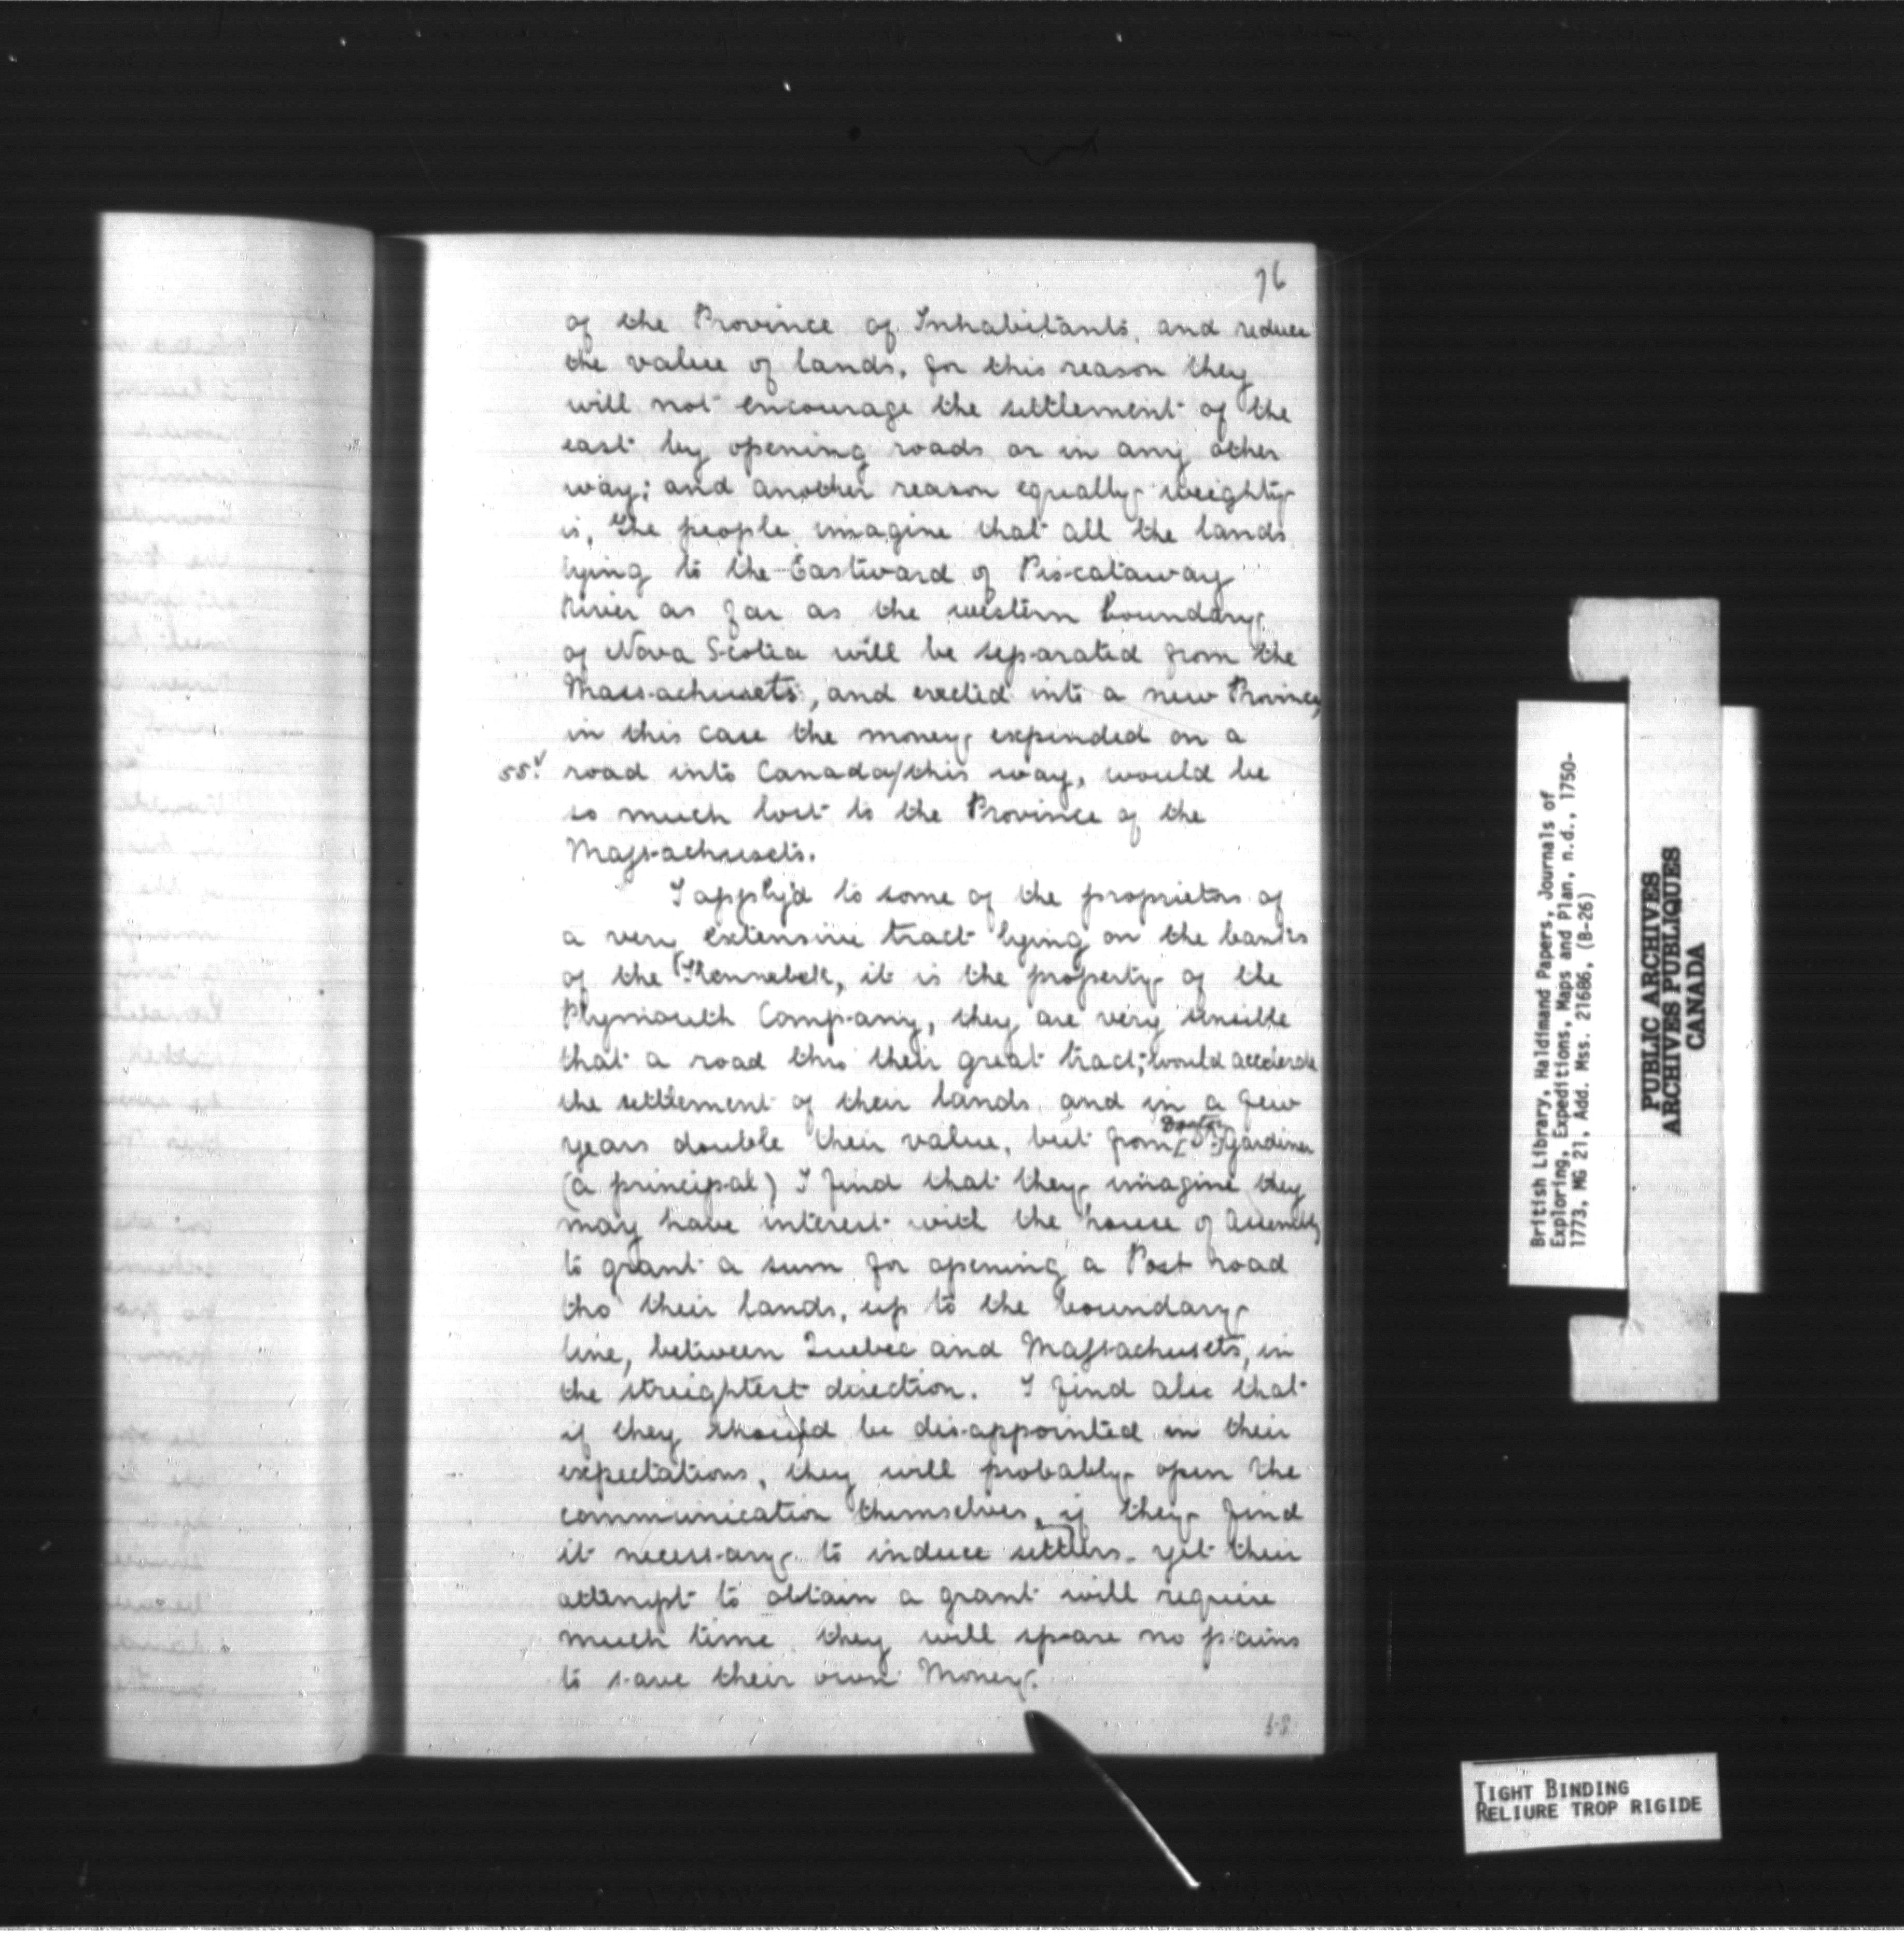 76
of the Province of Inhabitants, and reduce
the value of lands, for this reason they
will not encourage the settlement of the
east by opening roads or in any other
way; and another reason equally weighty
is, the people imagine that all the lands
lying to the Eastward of Piscataway
River as far as the western boundary
of Nova Scotia will be separated from the
Massachusets, and erected into a new Province,
in this case the money expended on a
55v road into Canada/this way, would be
so much lost to the Province of the
Massachusets.
I apply'd to some of the proprietors of
a very extensive tract lying on the banks
of the Kennebek, it is the property of the
Plymouth Company, they are very sensible
that a road thro their great tract, would accelerate
the settlement of their lands, and in a few
years double their value, but from [Dr.] Gardiner
(a principal) I find that they imagine they
may have interest with the house of Assembly
to grant a sum for opening a Post road
tho' their lands, up to the boundary
line, between Quebec and Massachusets, in
the streightest direction. I find also that
if they should be disappointed in their
expectations, they will probably open the
communication themselves, if they find
it necessary to induce settlers. yet their
attempt to obtain a grant will require
much time, they will spare no pains
to save their own Money.
British Library, Haldimand Papers, Journals of
Exploring, Expeditions, Maps and Plan, n.d., 1750-
1773, MG 21, Add. Mss. 21686, (B-26)
PUBLIC ARCHIVES
ARCHIVES PUBLIQUES
CANADA
TIGHT BINDING
RELIURE TROP RIGIDE